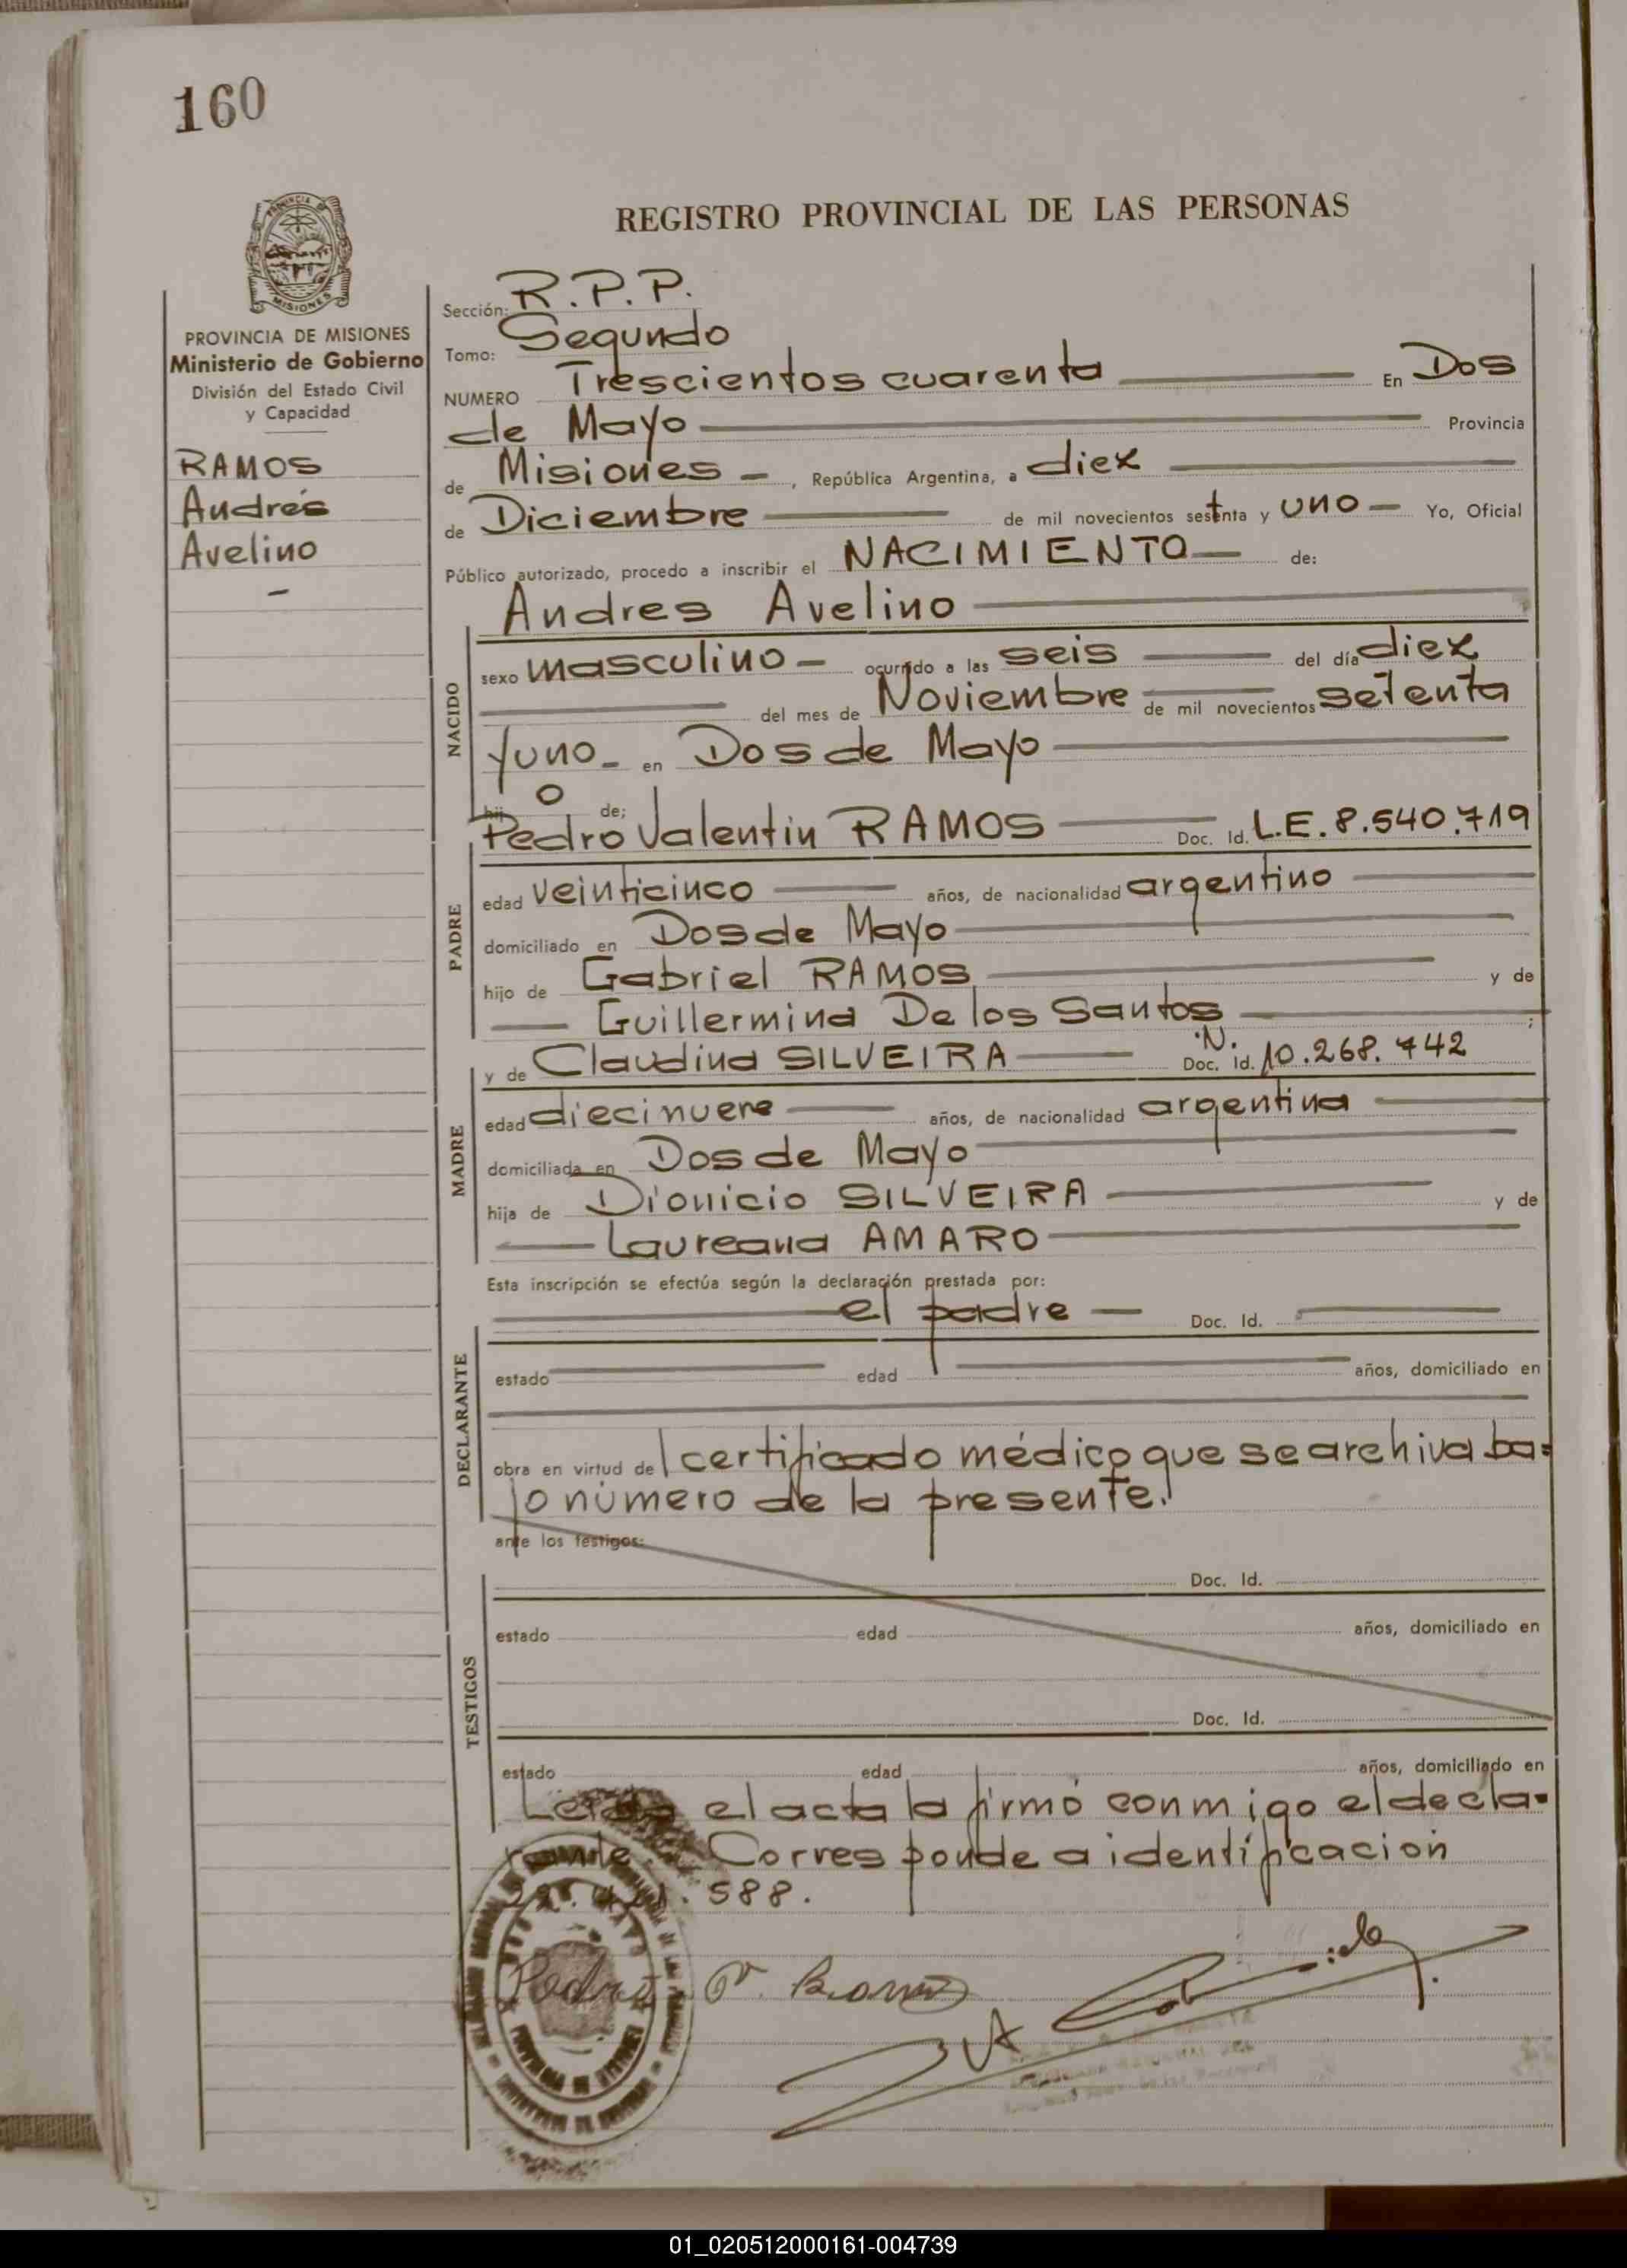 160
PROVINCIA DE
MISIONES
REGISTRO PROVINCIAL DE LAS PERSONAS
PROVINCIA DE MISIONES
Ministerio de Gobierno
División del Estado Civil
y Capacidad
RAMOS
Andrés
Avelino
Sección: R.P.P.
Tomo: Segundo
NUMERO Trescientos cuarenta En Dos
de Mayo Provincia
de Misiones, República Argentina, a diez
de Diciembre de mil novecientos setenta y uno Yo, Oficial
Público autorizado, procedo a inscribir el NACIMIENTO de:
Andres Avelino
NACIDO
sexo masculino ocurrido a las seis del día diez
del mes de Noviembre de mil novecientos setenta
y uno en Dos de Mayo
hijo de:
Pedro Valentin RAMOS Doc. Id. L.E. 8.540.719
PADRE
edad veinticinco años, de nacionalidad argentino
domiciliado en Dos de Mayo
hijo de Gabriel RAMOS y de
Guillermina De los Santos ;
y de Claudina SILVEIRA Doc. Id. N. 10.268.742
MADRE
edad diecinueve años, de nacionalidad argentina
domiciliada en Dos de Mayo
hija de Dionicio SILVEIRA y de
Laureana AMARO
Esta inscripción se efectúa según la declaración prestada por:
el padre Doc. Id.
DECLARANTE
estado edad años, domiciliado en
obra en virtud del certificado médico que se archiva ba=
jo número de la presente.
ante los testigos:
Doc. Id.
TESTIGOS
estado edad años, domiciliado en
Doc. Id.
estado edad años, domiciliado en
Leida el acta la firmó conmigo el decla-
rante. Corresponde a identificación
588.
Pedro V. Ramos
PROVINCIA DE MISIONES
01_020512000161-004739